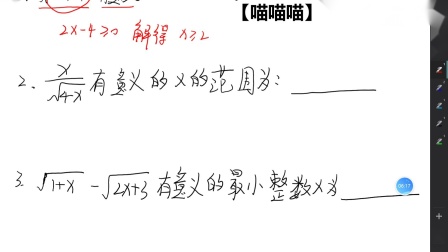 【喵喵喵】
2x-4≥0 解得 x≥2
2. x/√4-x 有意义的x的范围为: ____
3. √1+x - √2x+3 有意义的最小整数x为____
06:17